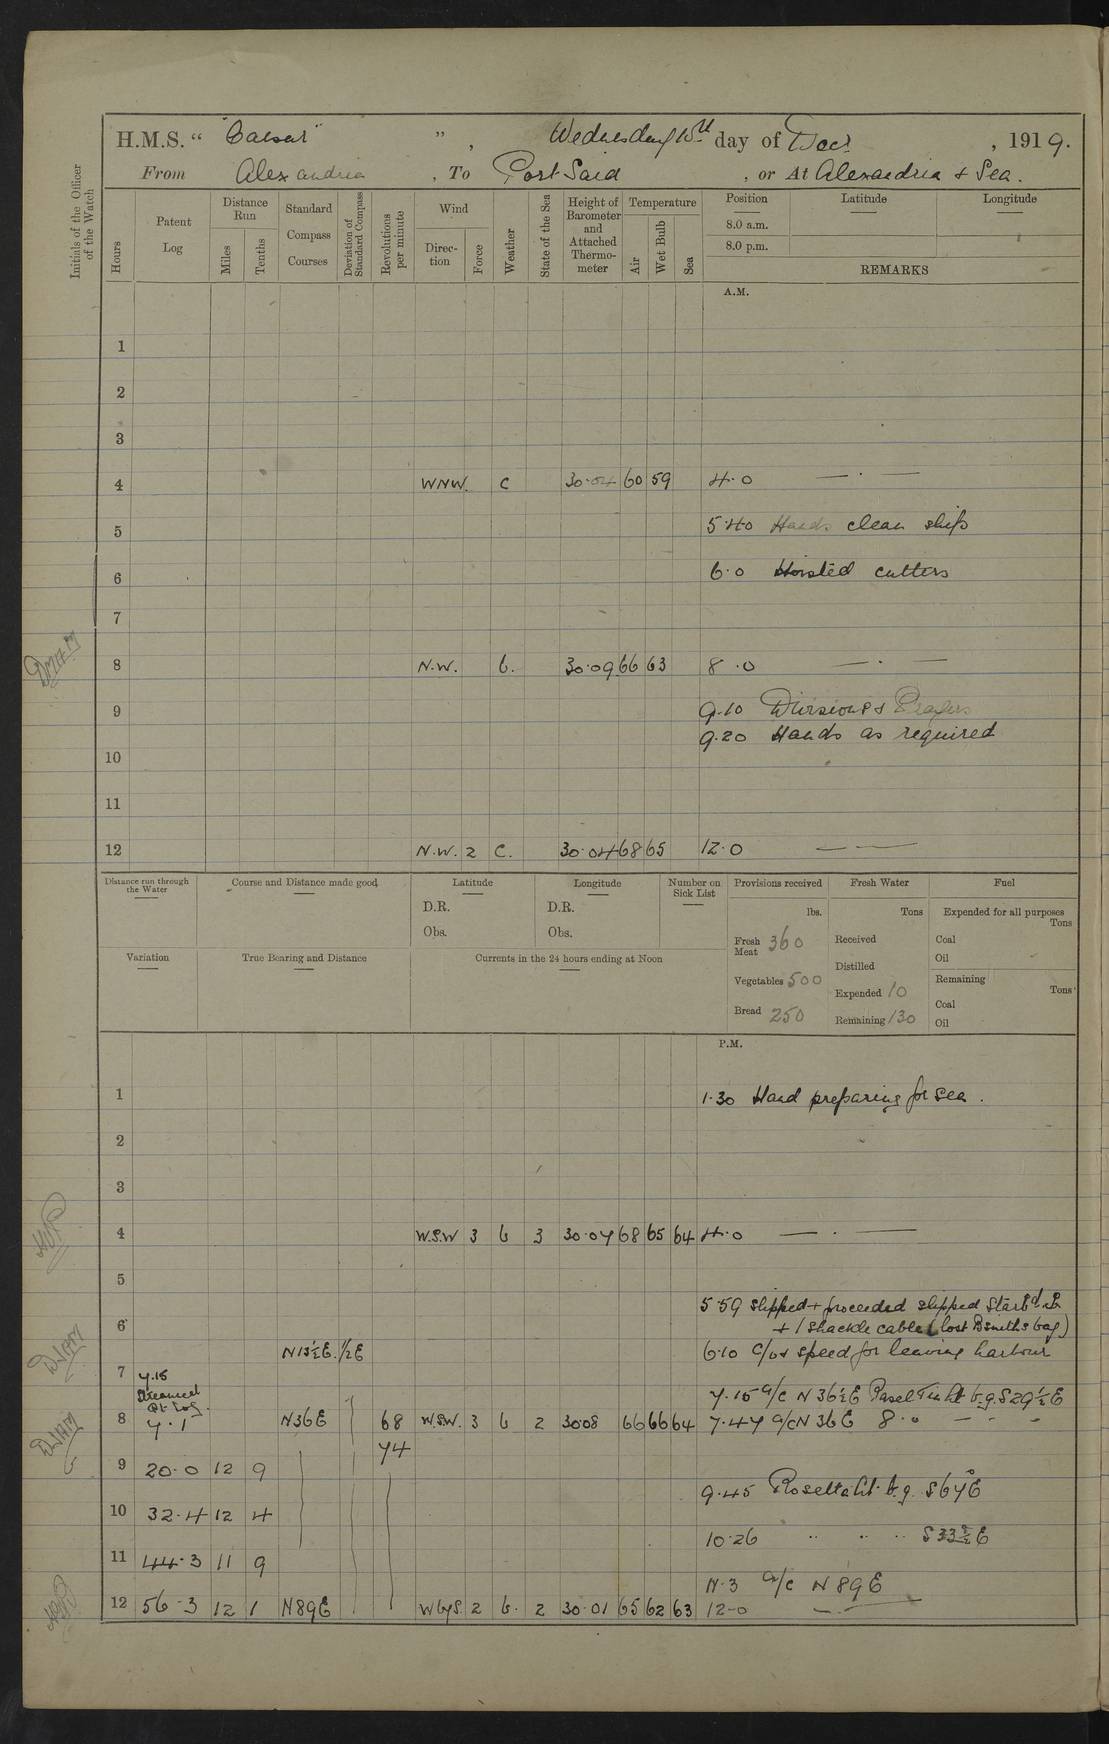 H.M.S. " "Caesar" " , Wednesday 10th day of Decr , 1919.
From Alexandria , To Port Said , or At Alexandria & Sea .
Initials of the Officer of the Watch
Hours
Patent Log
Distance Run
Miles
Tenths
Standard Compass Courses
Deviation of Standard Compass
Revolutions per minute
Wind
Direction
Force
Weather
State of the Sea
Height of Barometer and Attached Thermometer
Temperature
Air
Wet Bulb
Sea
Position Latitude Longitude
8.0 a.m.
8.0 p.m.
REMARKS
A.M.
1
2
3
4 WNW. c 30.04 60 59 4.0 — . —
5 5.40 Hands clean ship
6 6.0 Hoisted cutters
7
8 N.W. b. 30.09 66 63 8.0 — . —
9 9.10 Divisions & Prayers
9.20 Hands as required
10
11
12 N.W. 2 C. 30.04 68 65 12.0 — —
Distance run through the Water
Course and Distance made good
Latitude
D.R.
Obs.
Longitude
D.R.
Obs.
Number on Sick List
Provisions received
lbs.
Fresh Meat 360
Vegetables 500
Bread 250
Fresh Water
Tons
Received
Distilled
Expended 10
Remaining 130
Fuel
Expended for all purposes
Tons
Coal
Oil
Remaining
Tons
Coal
Oil
Variation
True Bearing and Distance
Currents in the 24 hours ending at Noon
P.M.
1 1.30 Hand preparing for sea .
2
3
4 W.S.W 3 b 3 30.07 68 65 64 4.0 — . —
5
5.59 slipped & proceeded slipped Starbd
6 & 1 shackle cable (lost Bsmiths bag)
N13½E. ½E 6.10 C/o & speed for leaving harbour
7 7.15
Streamed
Pt. Log. 7.15 a/c N 36½E Light b.g. S29½E
8 7.1 N36E 68 W.S.W. 3 b 2 30.08 66 66 64 7.47 a/c N 36 E 8.0 — — —
74
9 20.0 12 9
9.45 Rosetta Lt. b.g. S67°E
10 32.4 12 4
10.26 " " " S33½E
11 44.3 11 9
11.3 a/c N 89 E
12 56.3 12 1 N89E W by S. 2 b. 2 30.01 65 62 63 12-0 —